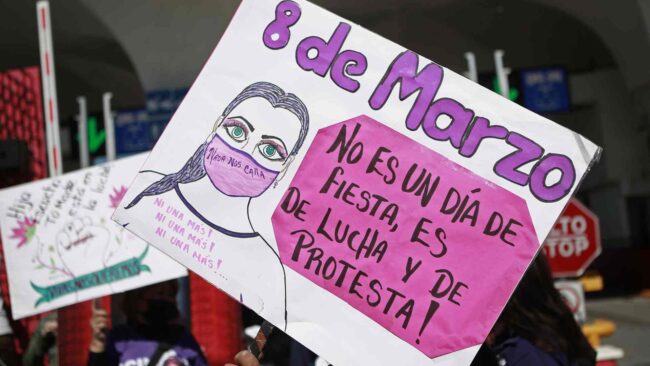 8 de Marzo
NO ES UN DÍA DE
FIESTA, ES
DE LUCHA Y DE
PROTESTA!
NADA NOS CALLA
NI UNA MÁS!
NI UNA MÁS!
NI UNA MÁS!
ALTO
STOP